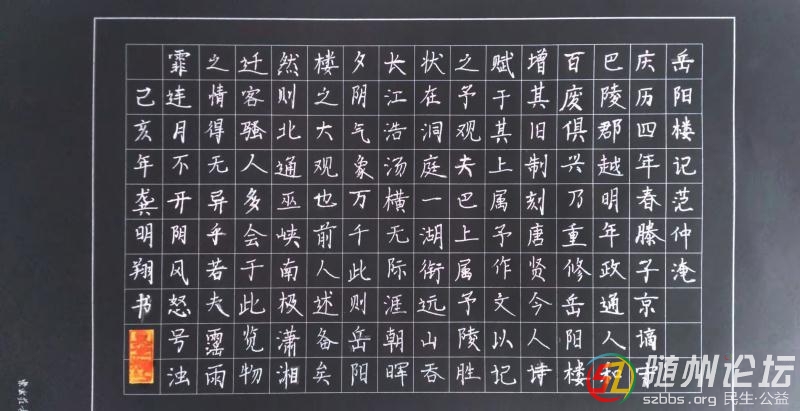 岳阳楼记范仲淹
庆历四年春滕子京谪守
巴陵郡越明年政通人和
百废俱兴乃重修岳阳楼
增其旧制刻唐贤今人诗
赋于其上属予作文以记
之予观夫巴上属予陵胜
状在洞庭一湖衔远山吞
长江浩汤横无际涯朝晖
夕阴气象万千此则岳阳
楼之大观也前人述备矣
然则北通巫峡南极潇湘
迁客骚人多会于此览物
之情得无异乎若夫霪雨
霏连月不开阴风怒号浊
己亥年龚明翔书
随州论坛
szbbs.org 民生·公益